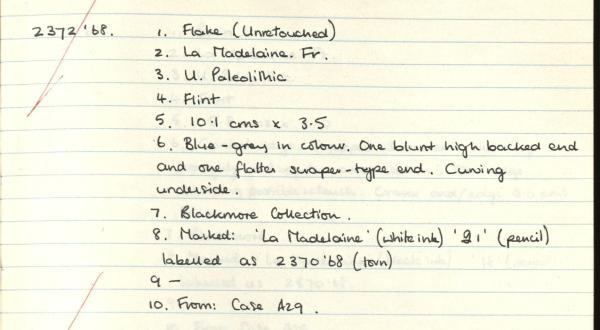 2372'68. 1. Flake (Unretouched)
2. La Madelaine. Fr.
3. U. Paleolithic
4. Flint
5. 10.1 cms x 3.5
6. Blue-grey in colour. One blunt high backed end
and one flatter scraper-type end. Curving
underside.
7. Blackmore Collection.
8. Marked: 'La Madelaine' (white ink) '21' (pencil)
labelled as 2370'68 (torn)
9 —
10. From: Case A29.